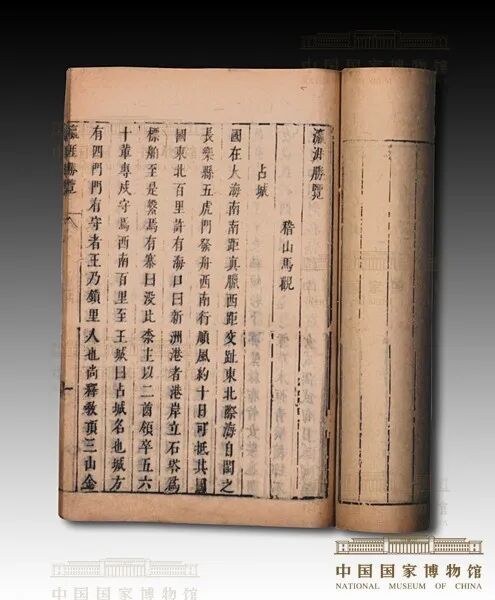 瀛涯勝覽
稽山馬觀
占城
國在大海南南距真臘西距交趾東北際海自閩之
長樂縣五虎門發舟西南行順風約十日可抵其國
國東北百里許有海口曰新洲港者港岸立石塔爲
標船至是繫焉有寨曰設比柰主以二酋領卒五六
十輩專戍守焉西南百里至王城曰占城名也城方
有四門門有守者王乃鎖里人也尚釋敎頂三山金
瀛涯勝覽
一
中国国家博物馆
中国国家博物馆
NATIONAL MUSEUM OF CHINA
中国国家博物馆